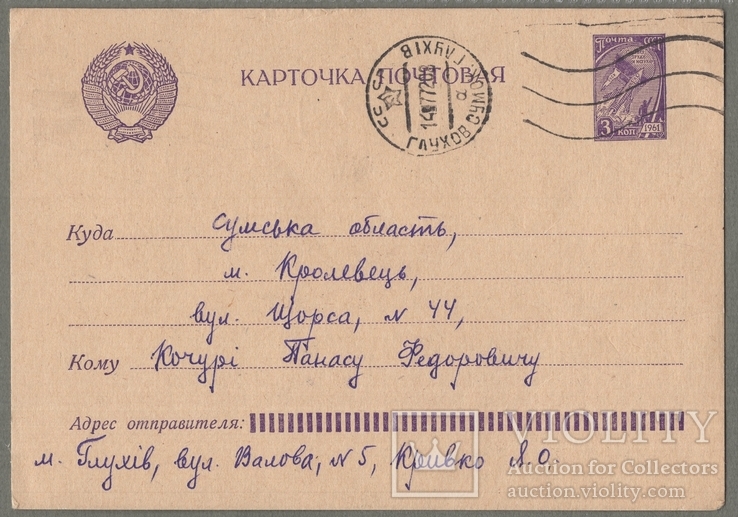 КАРТОЧКА ПОЧТОВАЯ
ГЛУХІВ
ГЛУХОВ СУМСКОЙ
СССР
Почта СССР
3 КОП 1961
Куда сумська область,
м. Кролевець,
вул. Щорса, N 44,
Кому Кочурі Панасу Федоровичу
Адрес отправителя:
м. Глухів, вул. Валова, N 5, Кривко Я.О.
VIOLITY
Auction for Collectors
auction.violity.com